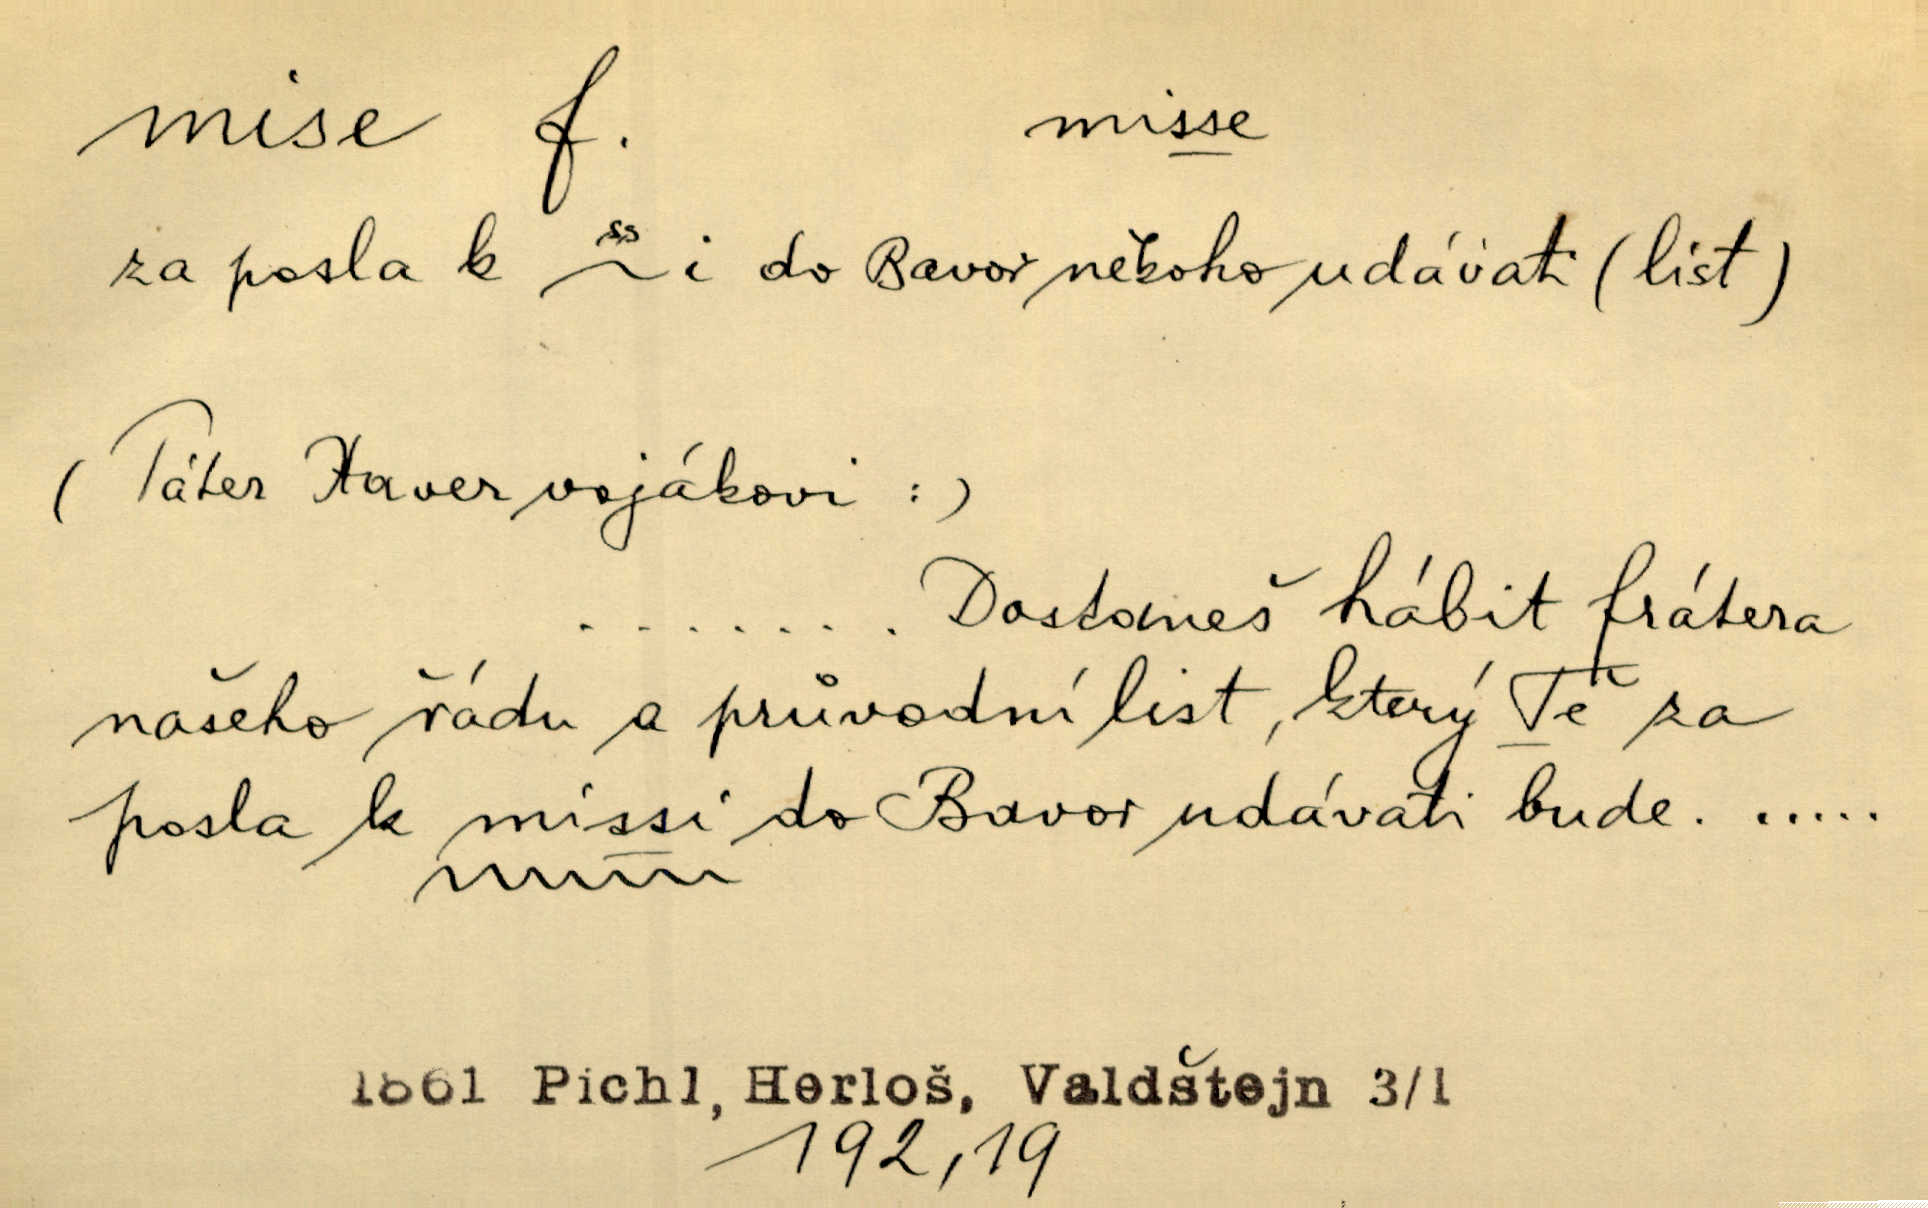 mise f. misse
za posla k ~i do Bavor někoho udávati (list)
ss
(Páter Xaver vojákovi :)
........ Dostaneš hábit frátera
našeho řádu a průvodní list, který Tě za
posla k missi do Bavor udávati bude. .....
1861 Pichl, Herloš, Valdštejn 3/1
192,19